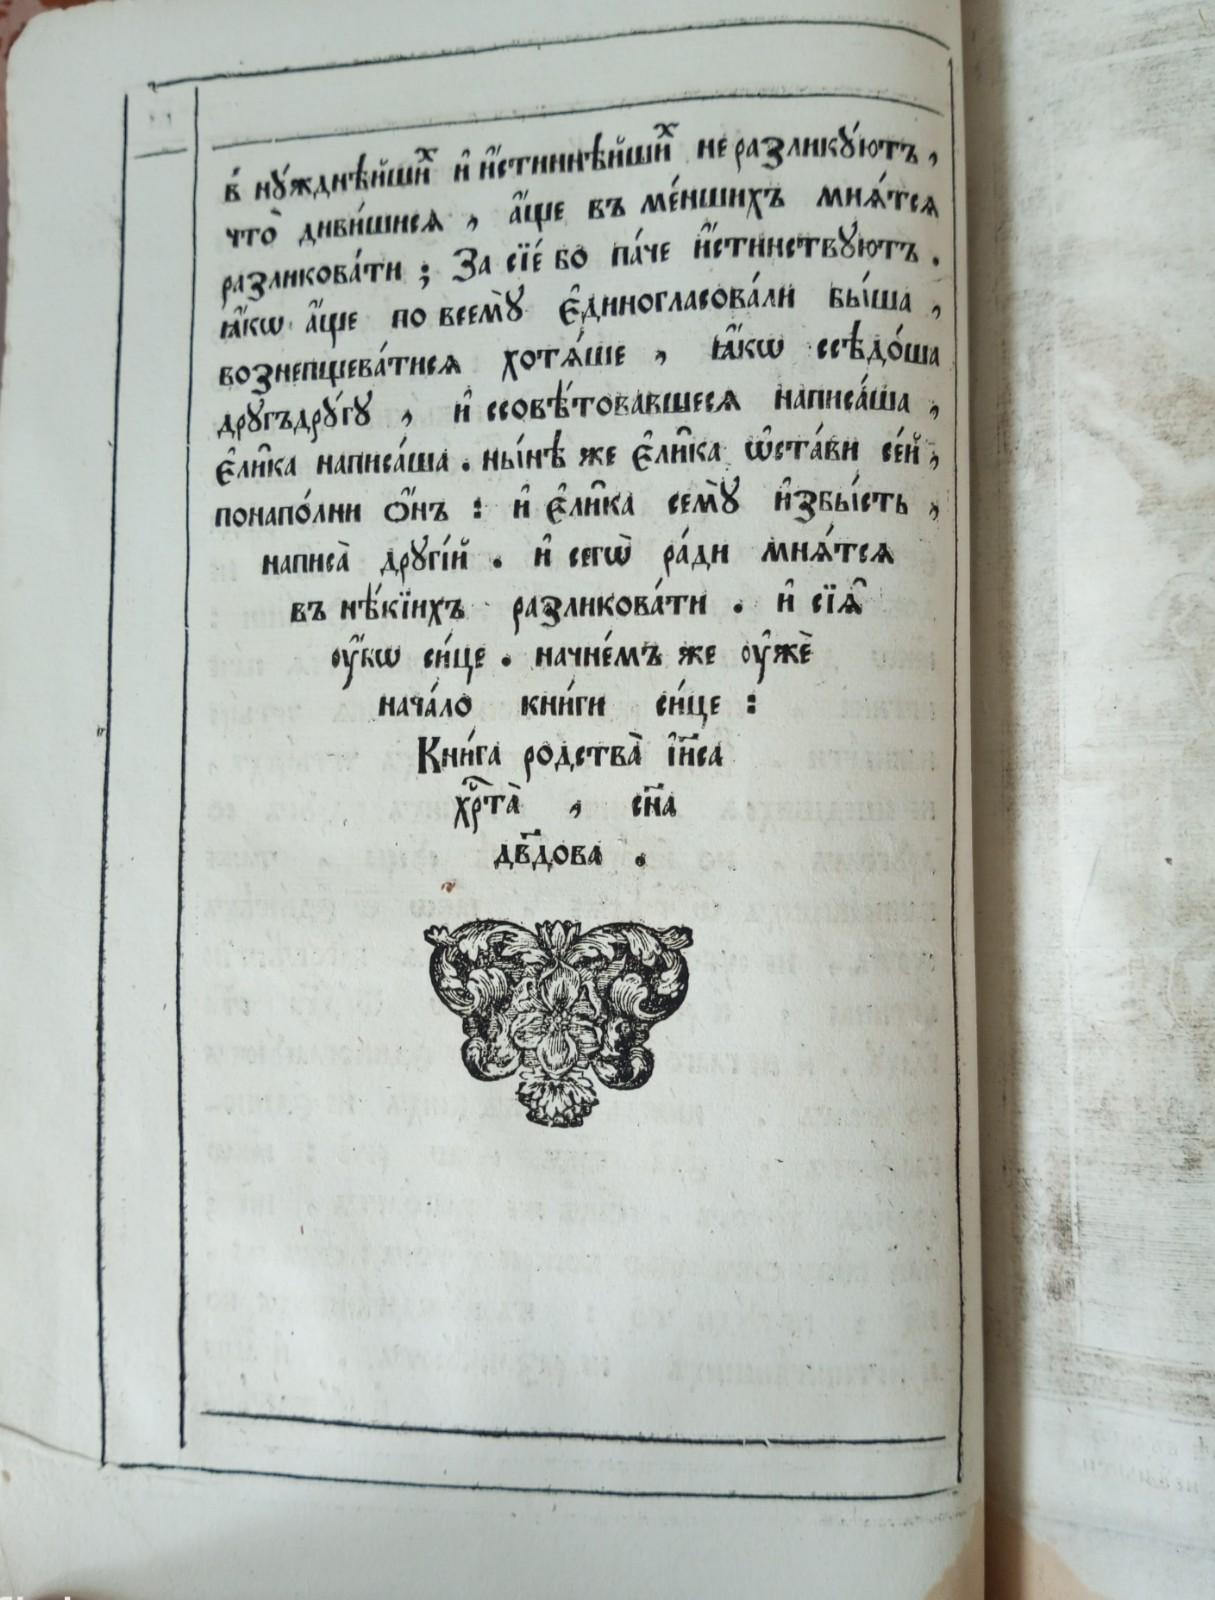 в̾ ну́ждне́йши ⷯ и҆ и҆́стинне́йши ⷯ не разлику́ютъ ,
что̀ диви́шися , а҆́ще въ ме́ншихъ мня́тся
разликова́ти ; За сїе́ бо па́че и҆́стинствуютъ .
ꙗ҆́кѡ а҆́ще по всемꙋ̀ є҆диногласова́ли бы́ша ,
вознепщева́тися хотя́ше , ꙗ҆́кѡ ссѣдо́ша
дрꙋгъдрꙋ́гꙋ , и҆ ссовѣ́товавшеся написа́ша ,
є҆ли̑ка написа́ша . ны́нѣ же є҆ли̑ка ѡ҆ста́ви се́й ,
понапо́лни ѻ҆́нъ : и҆ є҆ли̑ка семꙋ̀ и҆збы́сть ,
написа̀ дрꙋгі́й . и҆ сегѡ̀ ра́ди мня́тся
въ нѣ́кїихъ разликова́ти . и҆ сїѧ̑
ѹ҆́бѡ си́це . начне́мъ же ѹ҆жѐ
нача́ло кни́ги си́це :
Кни́га родства̀ і҆и҃са
хрⷭ҇та̀ , сн҃а
дв҃дова .